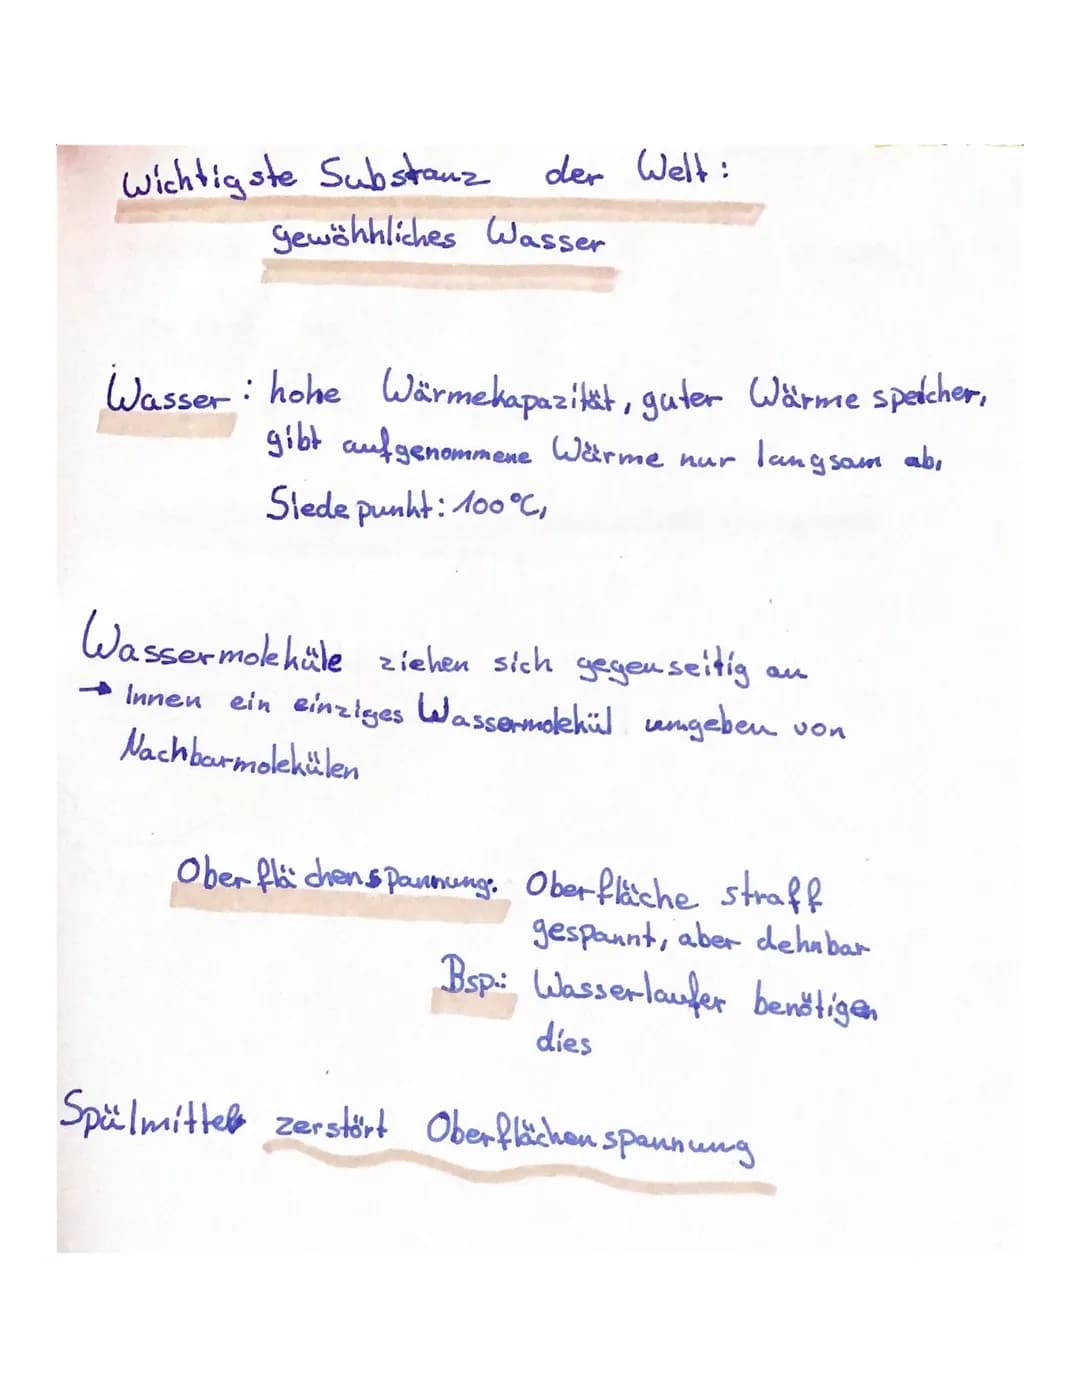 Wichtigste Substanz der Welt:
gewöhnliches Wasser
Wasser: hohe Wärmekapazität, guter Wärmespeicher,
gibt aufgenommene Wärme nur langsam ab,
Siedepunkt: 100°C,
Wassermoleküle ziehen sich gegenseitig an
→ Innen ein einziges Wassermolekül umgeben von
Nachbarmolekülen
Oberflächenspannung: Oberfläche straff
gespannt, aber dehnbar
Bsp.: Wasserlaufer benötigen
dies
Spülmittel zerstört Oberflächenspannung